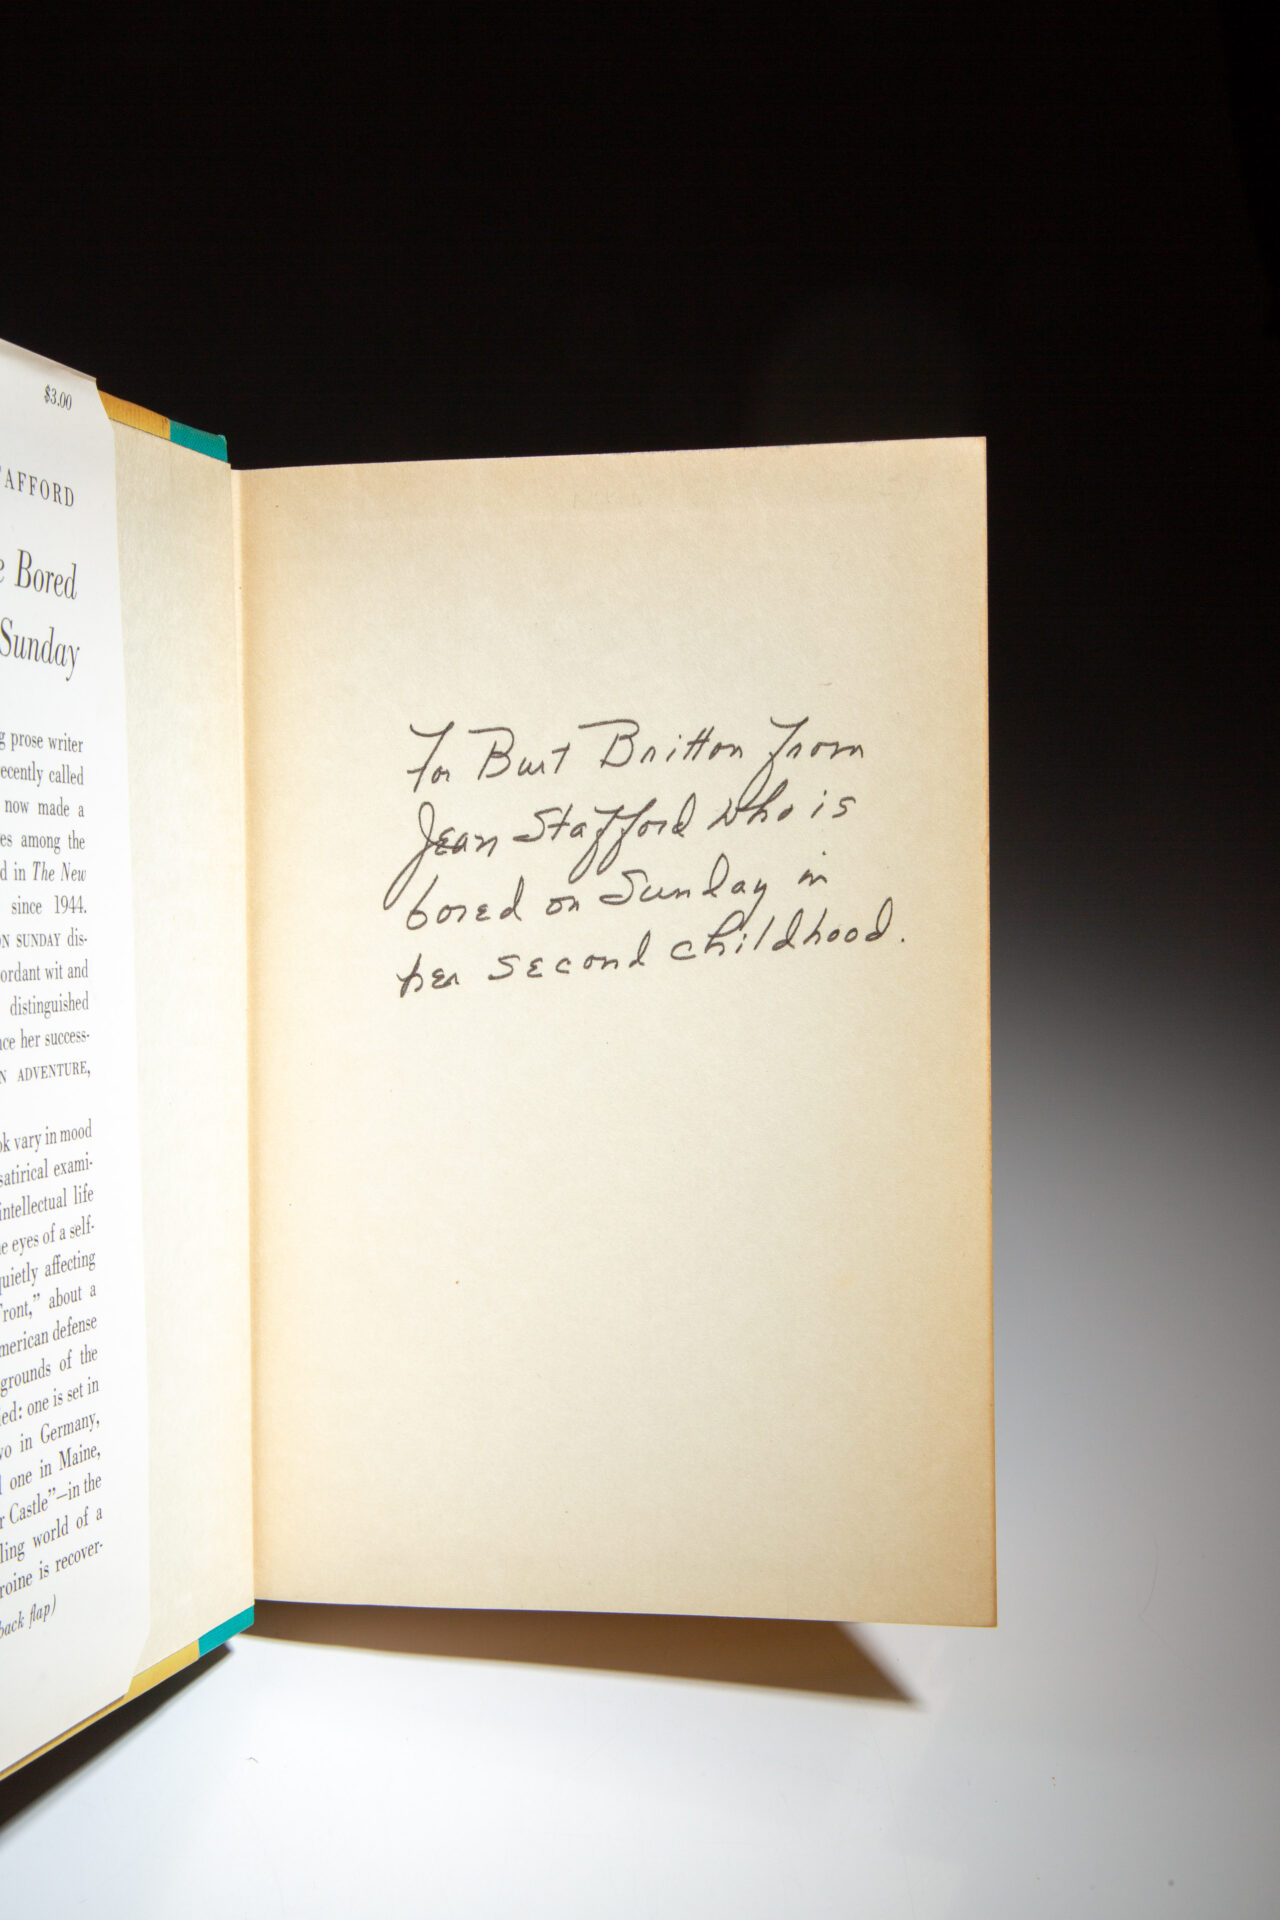 $3.00
AFFORD
Bored
Sunday
prose writer
ecently called
now made a
es among the
d in The New
since 1944.
ON SUNDAY dis-
ordant wit and
distinguished
nce her success-
N ADVENTURE,
ok vary in mood
satirical exami-
intellectual life
e eyes of a self-
quietly affecting
Front," about a
merican defense
grounds of the
ed: one is set in
wo in Germany,
one in Maine,
r Castle"—in the
ling world of a
roine is recover-
back flap)
For Burt Britton from
Jean Stafford who is
bored on Sunday in
her second childhood.